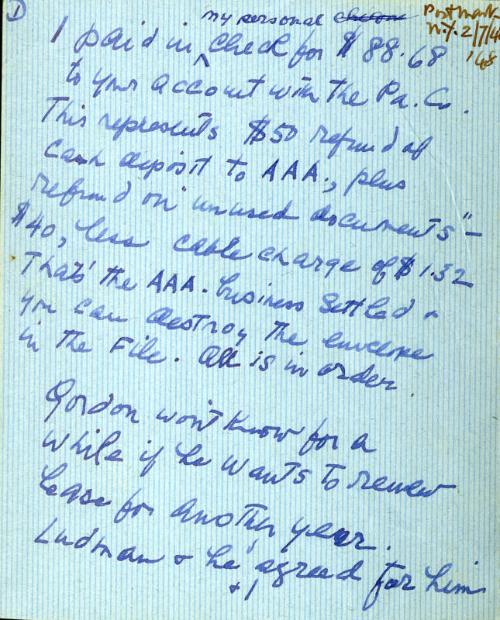 D
Postmark
N.Y. 2/7/48
my personal
I paid in check for $88.68
to your account with the Pa. Co.
This represents $50 refund of
cash deposit to AAA, plus
refund on "unused documents" -
$40, less cable charge of $1.32
That's the AAA. business settled &
you can destroy the envelope
in the File. All is in order.
Gordon won't know for a
while if he wants to renew
lease for another year.
Ludman & he agreed for him
& I